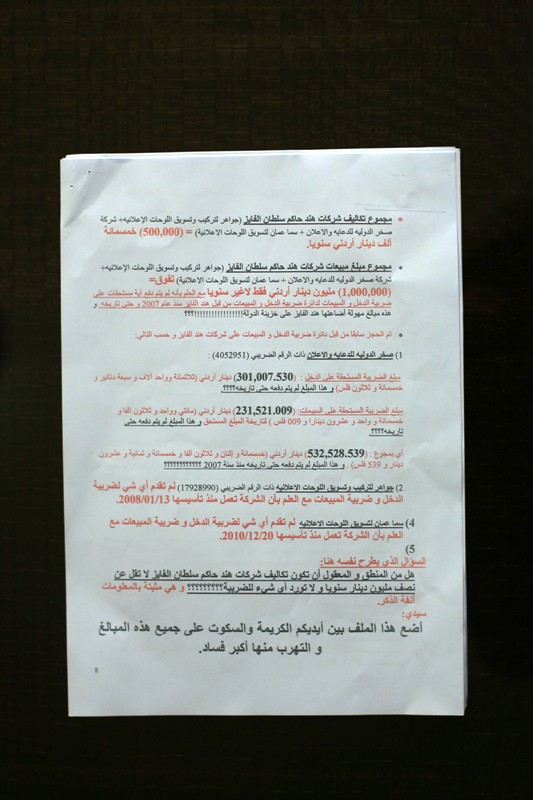 • مجموع تكاليف شركات هند حاكم سلطان الفايز (جواهر لتركيب وتسويق اللوحات الإعلانيه+ شركة
صخر الدوليه للدعايه والاعلان + سما عمان لتسويق اللوحات الإعلانية) = (500,000) خمسمائة
ألف دينار أردني سنويا.
• مجموع مبلغ مبيعات شركات هند حاكم سلطان الفايز (جواهر لتركيب وتسويق اللوحات الإعلانيه+
شركة صخر الدوليه للدعايه والاعلان + سما عمان لتسويق اللوحات الإعلانية) تفوق=
(1,000,000) مليون دينار أردني فقط لاغير سنويا مع العلم بأنه لم يتم دفع أية مستحقات على
ضريبة الدخل و المبيعات لدائرة ضريبة الدخل و المبيعات من قبل هند الفايز منذ عام 2007 و حتى تاريخه. و
هذه مبالغ مهولة أضاعتها هند الفايز على خزينة الدولة!!!!!!!!!!!!!!!!!!؟؟؟
• تم الحجز سابقا من قبل دائرة ضريبة الدخل و المبيعات على شركات هند الفايز و حسب التالي:
1) صخر الدوليه للدعايه والاعلان ذات الرقم الضريبي (4052951) :
مبلغ الضريبة المستحقة على الدخل : (301,007.530) دينار أردني (ثلاثمائة وواحد آلاف و سبعة دنانير و
خمسمائة و ثلاثون فلس) و هذا المبلغ لم يتم دفعه حتى تاريخه؟؟؟؟.
مبلغ الضريبة المستحقة على المبيعات: (231,521.009) دينار أردني (مائتي وواحد و ثلاثون الفا و
خمسمائة و واحد و عشرون دينارا و 009 فلس ) لتاريخة المبلغ المستحق و هذا المبلغ لم يتم دفعه حتى
تاريخه؟؟؟؟.
أي بمجموع : (532,528.539) دينار أردني (خمسمائة و إثنان و ثلاثون ألفا و خمسمائة و ثمانية و عشرون
دينار و 539 فلس) . و هذا المبلغ لم يتم دفعه حتى تاريخه منذ سنة 2007 ؟؟؟؟؟؟؟؟؟؟؟؟
2) جواهر لتركيب وتسويق اللوحات الاعلانيه ذات الرقم الضريبي (17928990) لم تقدم أي شي لضريبة
الدخل و ضريبة المبيعات مع العلم بأن الشركة تعمل منذ تأسيسها 2008/01/13.
4) سما عمان لتسويق اللوحات الاعلانيه لم تقدم أي شي لضريبة الدخل و ضريبة المبيعات مع
العلم بأن الشركة تعمل منذ تأسيسها 2010/12/20.
5)
السؤال الذي يطرح نفسه هنا:
هل من المنطق و المعقول أن تكون تكاليف شركات هند حاكم سلطان الفايز لا تقل عن
نصف مليون دينار سنويا و لا تورد أي شيء للضريبة؟؟؟؟؟؟؟؟؟ و هي مثبتة بالمعلومات
آنفة الذكر.
سيدي:
أضع هذا الملف بين أيديكم الكريمة والسكوت على جميع هذه المبالغ
و التهرب منها أكبر فساد.
8